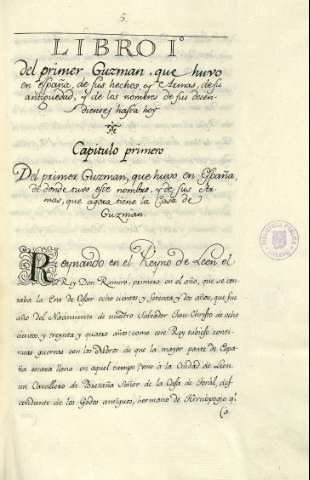 5
LIBRO Iº
del primer Guzman, que huvo
en españa, de sus hechos, y Armas, de su
antiguedad, y de los nombres de sus decen-
dientes hasta hoy
Capitulo primero
Del primer Guzman, que huvo en España,
de donde tuvo este nombre, y de sus Ar-
mas, que agora tiene la Casa de
Guzman.
Reynando en el Reyno de Leon el
Rey Don Ramiro, primero en el año, que se con-
taba la Era de Cesar ocho cientos y setenta, y dos años, que fue
año del Nacimiento de nuestro Salvador Jesu-Christo de ocho
cientos, y treynta y quatro años: como este Rey tubiese conti-
nuas guerras con los Moros de que la mayor parte de Espa-
ña estava llena en aquel tiempo, vino à la Ciudad de Leon
un Cavallero de Bretaña Señor de la Casa de Goràl, des-
cendiente de los Godos antiguos, hermano de